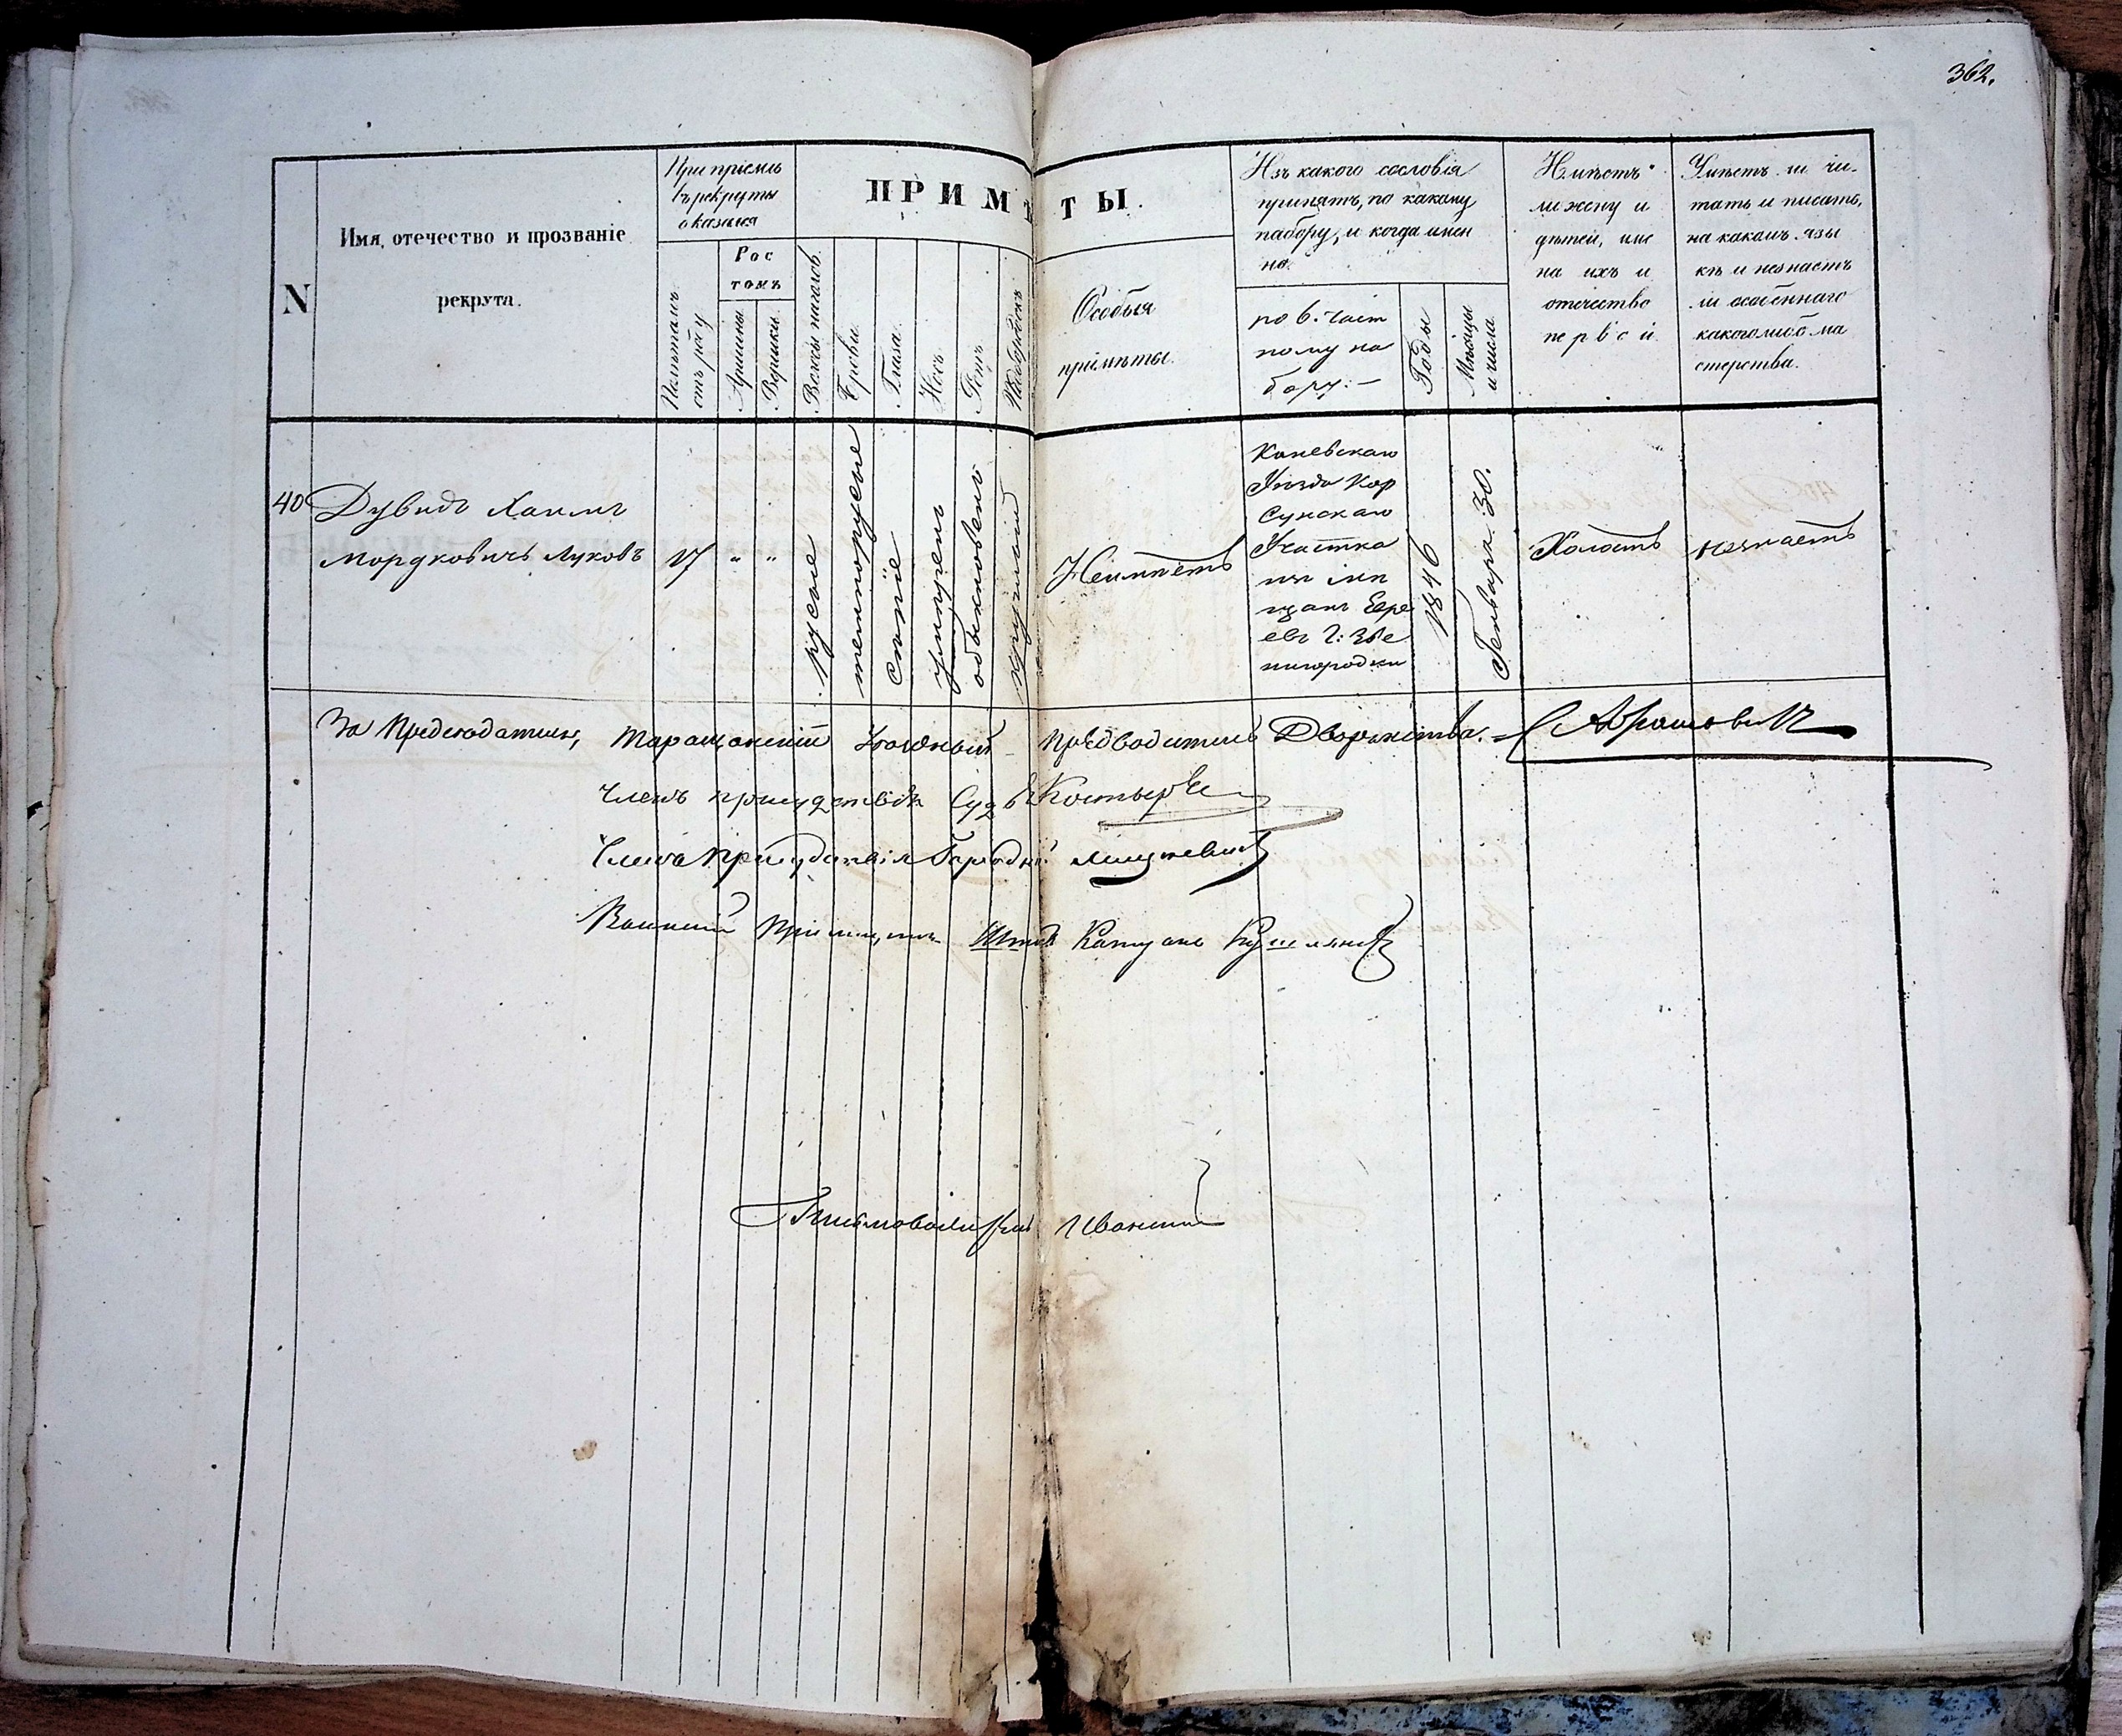 362.
N
Имя, отечество и прозваніе
рекрута.
При пріемѣ
въ рекруты
оказался
По лѣтамъ
отъ роду
Рос
томъ
Аршины
Вершки
ПРИМѢТЫ.
Волосы на голов.
Брови
Глаза
Носъ
Ротъ
Подбородокъ
Особыя
примѣты.
Изъ какого сословія
принятъ, по какому
набору, и когда имен
но.
по 6. част
ному на
бору:—
Годы
Мѣсяцы
и числа
Имѣетъ
ли жену и
дѣтей, име
на ихъ и
отечество
первой
Умѣетъ ли чи-
тать и писать,
на какомъ язы
кѣ и незнаетъ
ли особеннаго
какого либо ма
стерства.
40
Дувидъ Хаимъ
Мордковичъ Луковъ
17
"
"
русые
темнорусые
сѣрые
умѣренъ
обыкновенъ
круглый
Неимѣетъ
Каневскаго
Уѣзда Кор
сунскаго
Участка
изъ мѣ
щанъ Евре
евъ г: Зве
нигородки
1846
Генваря 30.
Холостъ
незнаетъ
За Председателя, Таращанскій Уѣздный Предводитель Дворянства. Абрамович
Членъ присудствія Судья
Членъ Присудствія Городн:
Воинскій Пріемщикъ Штабъ Капитанъ
Письмоводитель